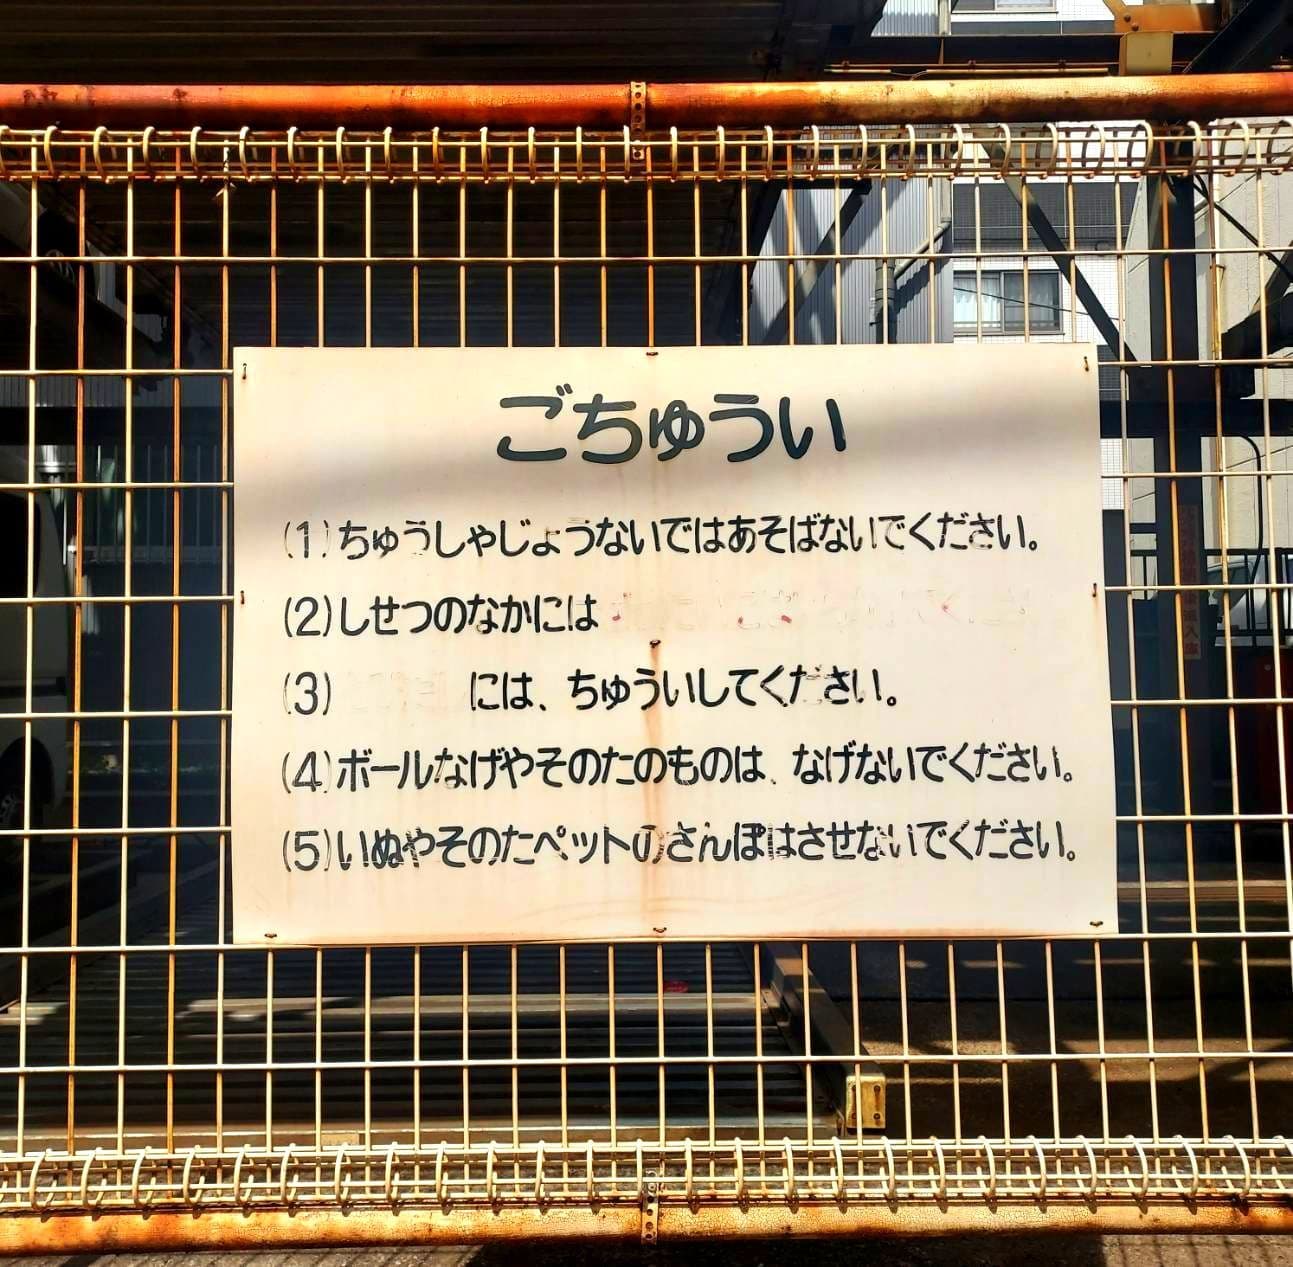 ごちゅうい
(1)ちゅうしゃじょうないではあそばないでください。
(2)しせつのなかには
(3) には、ちゅういしてください。
(4)ボールなげやそのたのものは、なげないでください。
(5)いぬやそのたペットのさんぽはさせないでください。